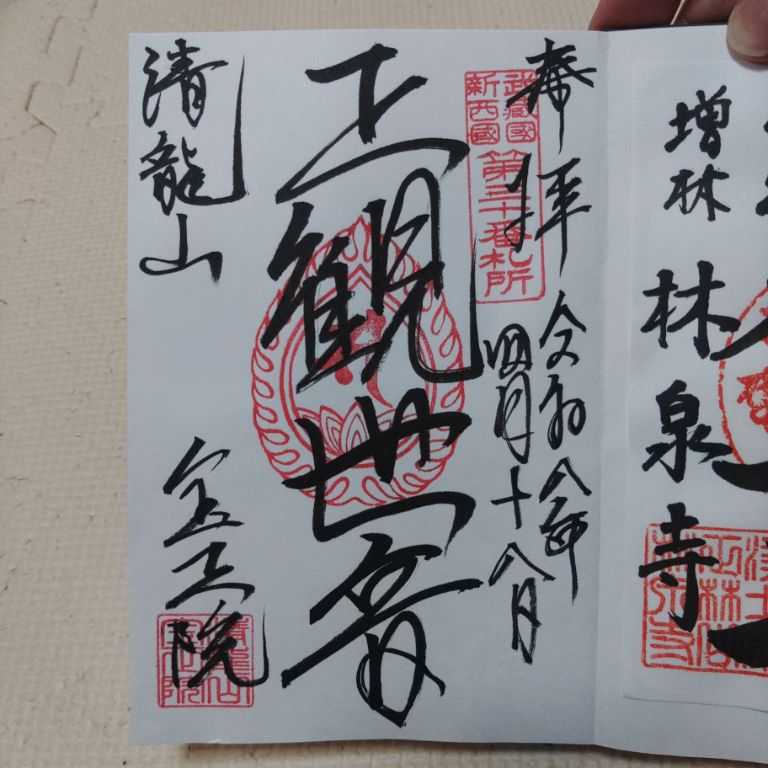 増林
林泉寺
奉拝
令和八年
四月十八日
武蔵國
新西國
第三十番札所
正観世音
清龍山
宝正院